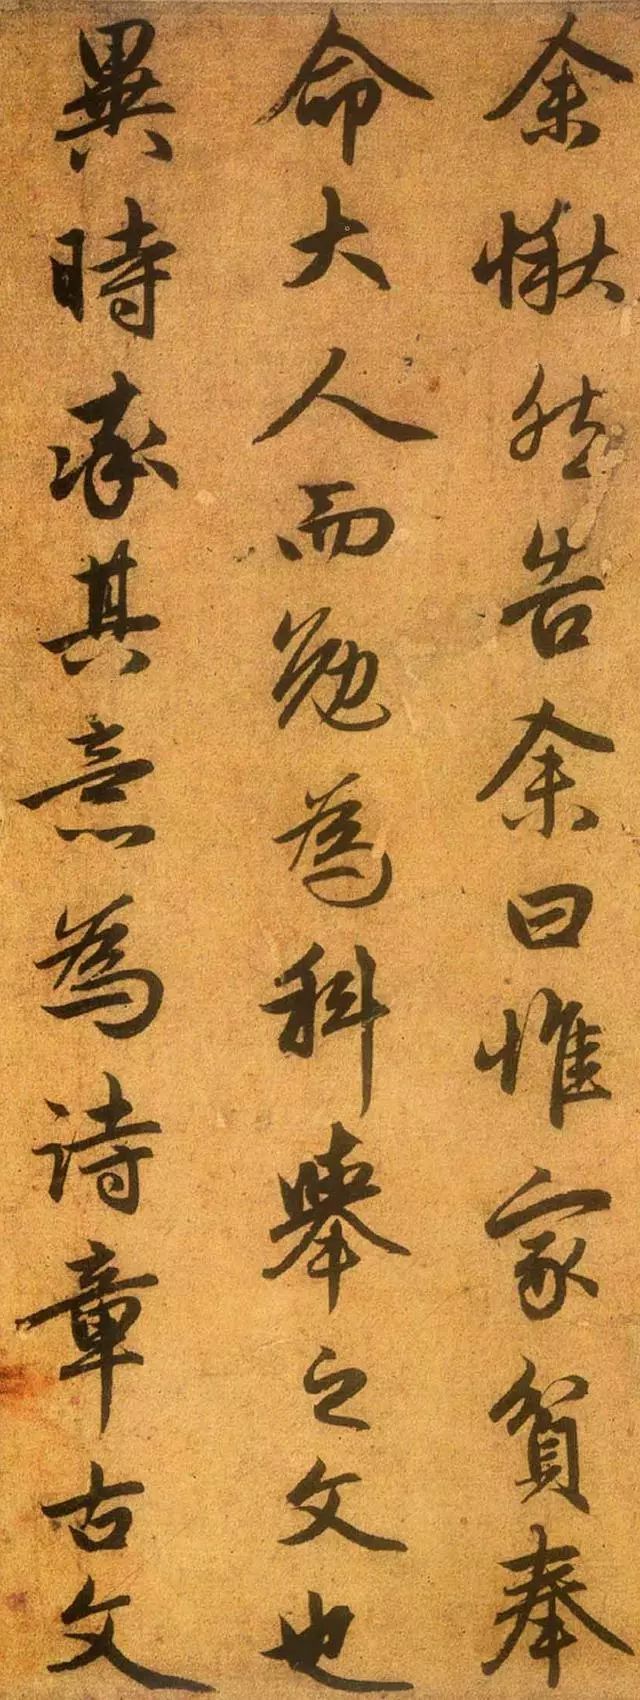 余愀然告余曰惟家貧奉
命大人而勉為科舉之文也
異時承其意為詩章古文